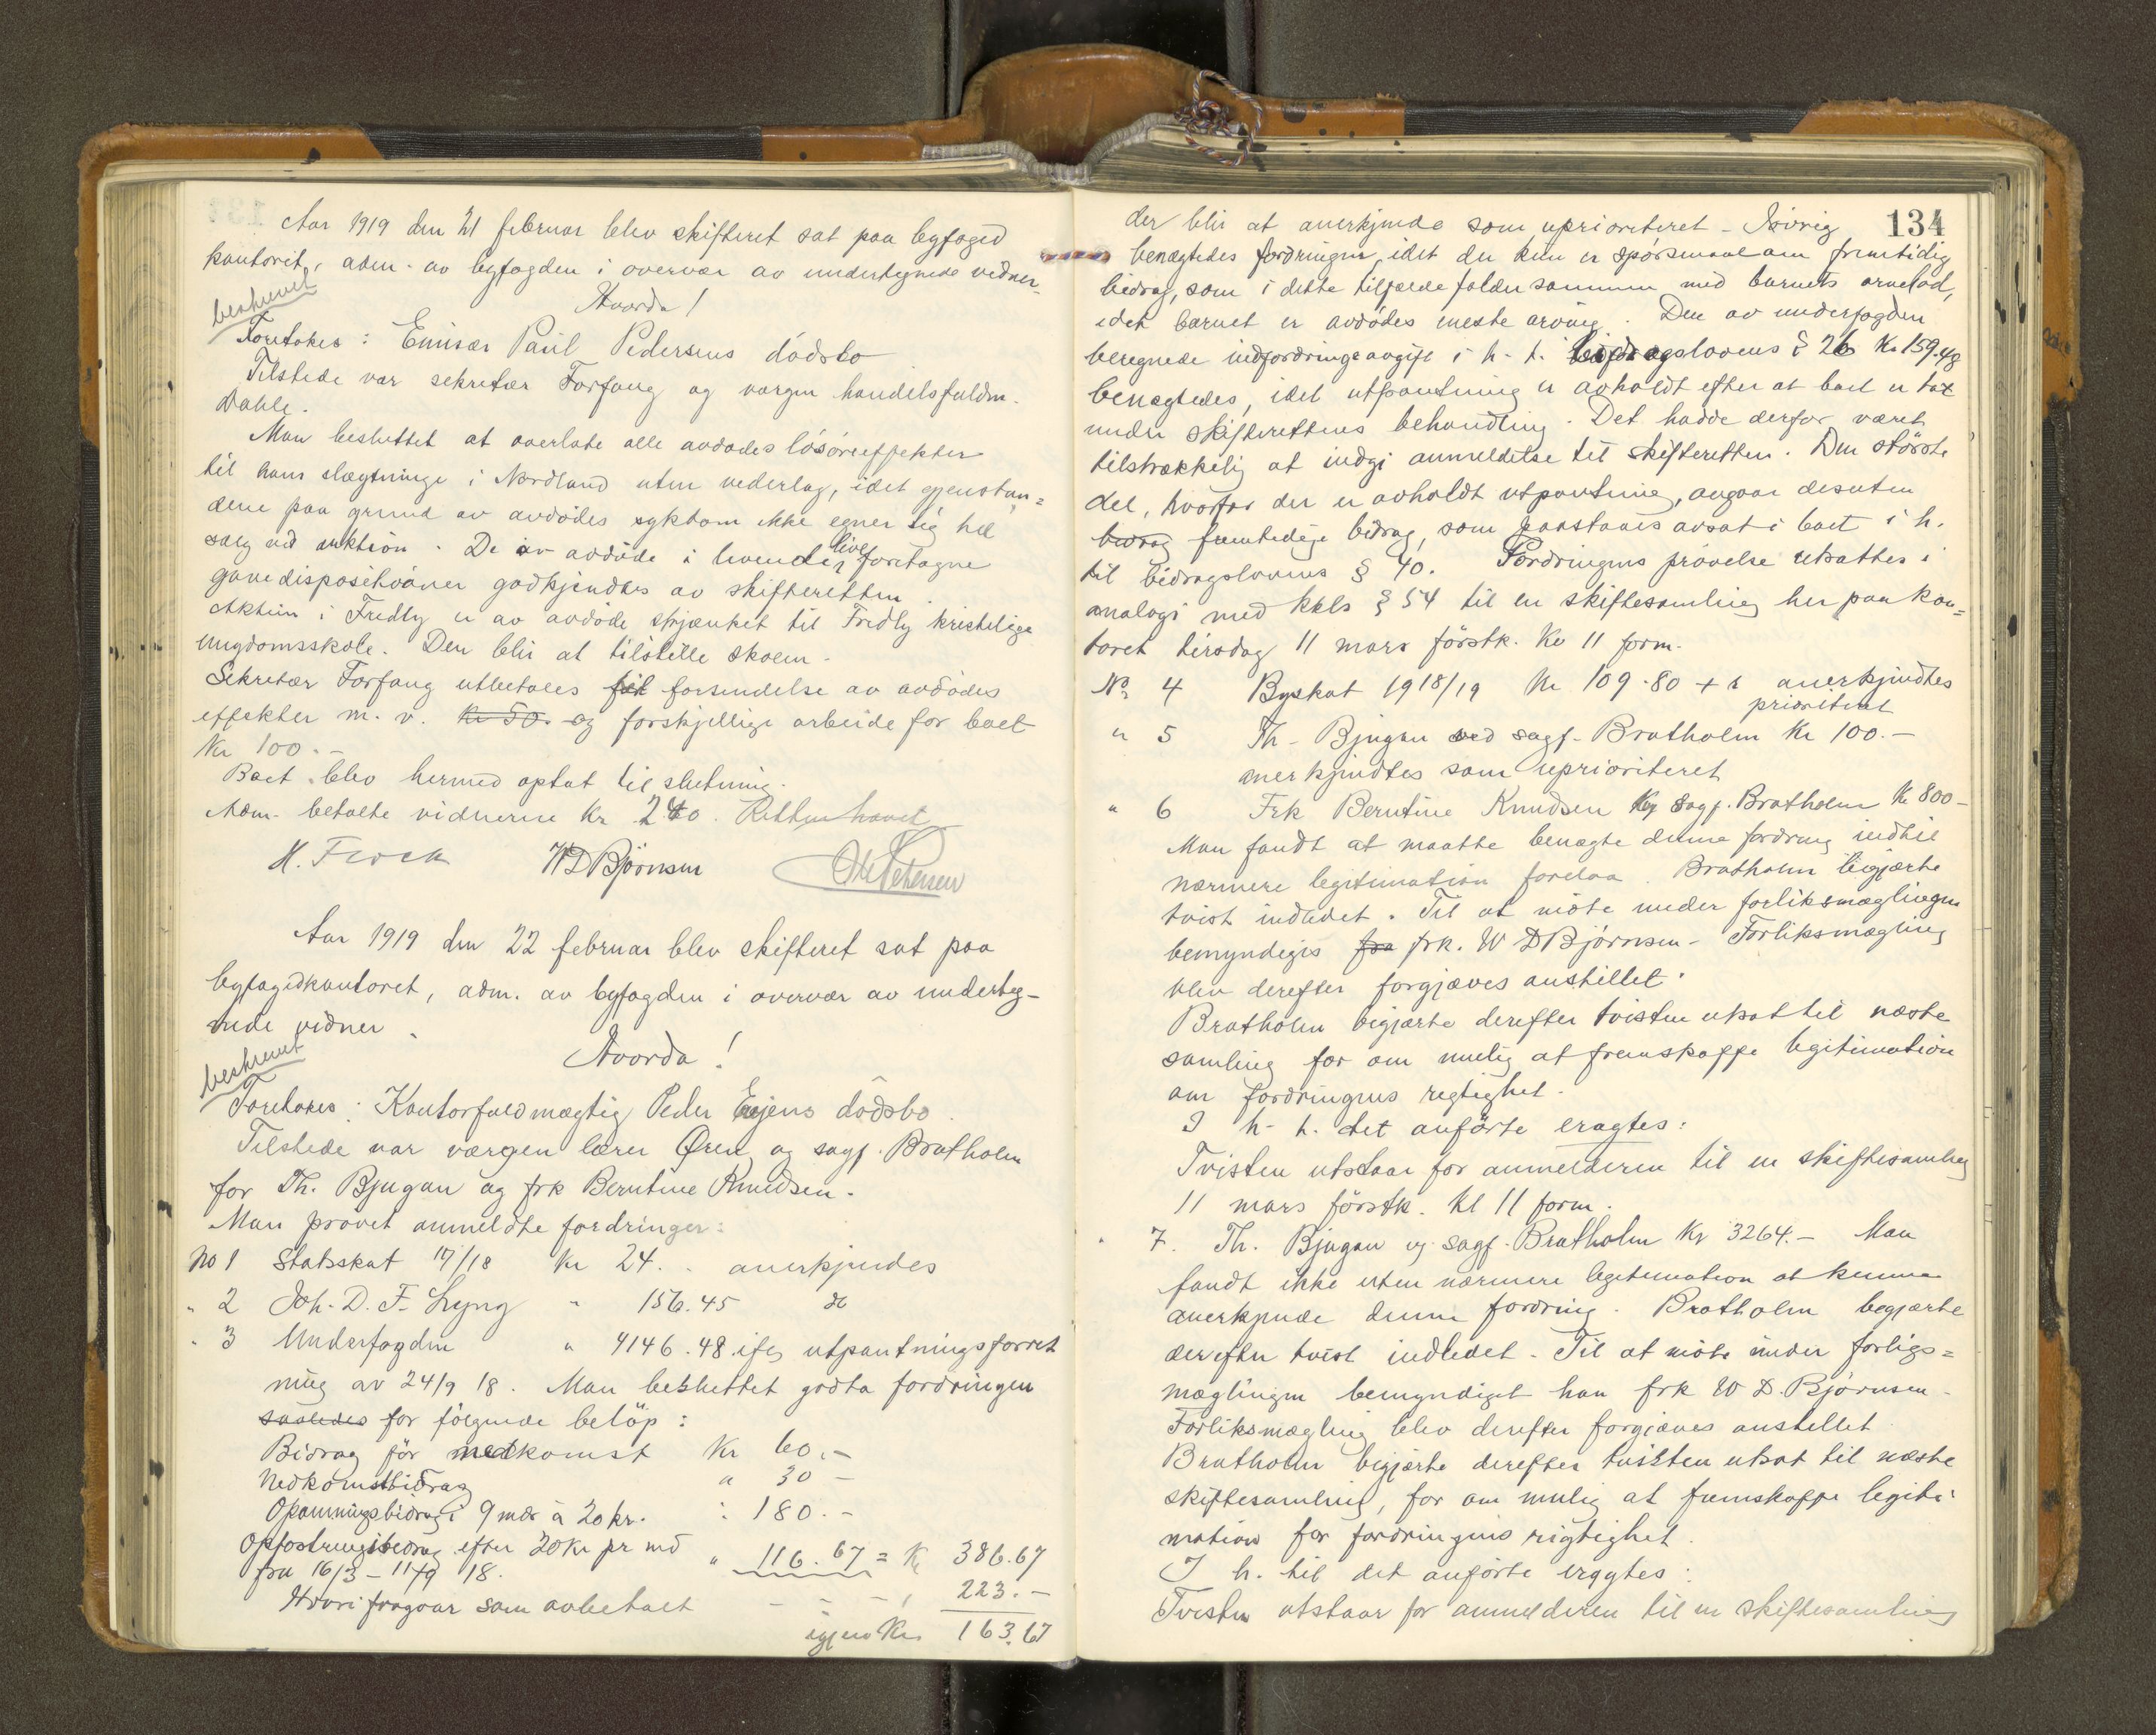 Aar 1919 den 21 februar blev skifteret sat paa byfoged
kontoret, adm. av byfogden i overvær av undertegnede vidner.
beskrevet
Hvorda!
Foretokes: Emissær Paul Pedersens dödsbo
Tilstede var sekretær Forfang og vergen handelsfuldm.
Dahle.
Man besluttet at overlate alle avdødes lösöreeffekter
til hans slægtninge i Nordland uten vederlag, idet gjenstan=
dene paa grund av avdødes sykdom ikke egner sig til
salg ved auktion. De av avdøde i levende live foretagne
gavedispositioner godkjendtes av skifteretten.
Aktien i Fredly er av avdøde skjænket til Fredly kristelige
ungdomsskole. Den blir at tilstille skolen.
Sekretær Forfang utbetales for forsendelse av avdødes
effekter m. v. kr 50. og forskjellige arbeide for boet
Kr 100.-
Boet blev hermed optat til slutning.
Adm. betalte vidnerne Kr 2.40. Retten hævet
H. Flock WDBjörnsen
Aar 1919 den 22 februar blev skifteret sat paa
byfogedkontoret, adm. av byfogden i overvær av underteg-
nede vidner.
beskrevet
Hvorda!
Foretokes: Kontorfuldmægtig Peder Eijens dödsbo.
Tilstede var værgen lærer Øren og sagf. Bratholm
for Th. Bjugan og frk Berntine Knudsen.
Man prövet anmeldte fordringer:
No 1 Statsskat 17/18 Kr 24. . anerkjendes
" 2 Joh. D. F. Lyng " 156.45 do
" 3 Underfogden " 4146.48 ifg utpantningsforret
ning av 24/9 18. Man besluttet godta fordringen
saaledes for fölgende belöp:
Bidrag för nedkomst Kr 60.-
Nedkomstbidrag " 30 -
Opamningsbidrag i 9 mdr à 20 kr. : 180.-
Opfostringsbidrag efter 20 Kr pr md
fra 16/3 - 11/9 18. " 116.67 = Kr 386.67
Hvori fragaar som avbetalt - - - , 223.-
igjen Kr 163.67
134
der blir at anerkjende som uprioriteret - Iövrig
benægtedes fordringen, idet der kun er spörsmaal om fremtidig
bidrag, som i dette tilfælde falder sammen med barnets arvelod,
idet barnet er avdödes eneste arving. Den av underfogden
beregnede indfordringsavgift i h. t. bidragslovens § 26 Kr 159.48
benægtedes, idet utpantning er avholdt efter at boet er tat
under skifterettens behandling. Det hadde derfor været
tilstrækkelig at indgi anmeldelse til skifteretten. Den störste
del, hvorfor der er avholdt utpantning, angaar desuten
bidrag fremtidige bidrag, som paastaaes avsat i boet i h.
til bidragslovens § 40. Fordringens prövelse utsattes i
analogi med kkls § 54 til en skiftesamling her paa kon=
toret tirsdag 11 mars förstk. Kl 11 form.
No 4 Byskat 1918/19 Kr 109.80 + r anerkjendtes
prioritert
" 5 Th. Bjugan ved sagf. Bratholm Kr 100.-
anerkjendtes som uprioriteret
" 6 Frk Berntine Knudsen v/ sagf. Bratholm Kr 800-
Man fandt at maatte benægte denne fordring indtil
nærmere legitimation forelaa. Bratholm begjærte
tvist indledet. Til at möte under forliksmæglingen
bemyndiges fra frk. W D Björnsen - Forliksmægling
blev derefter forgjæves anstillet.
Bratholm begjærte derefter tvisten utsat til næste
samling for om mulig at fremskaffe legitimation
om fordringens rigtighet.
I h. t. det anförte eragtes:
Tvisten utstaar for anmelderen til en skiftesamling
11 mars förstk. kl 11 form.
" 7. Th. Bjugan v/ sagf. Bratholm Kr 3264.- Man
fandt ikke uten nærmere legitimation at kunne
anerkjende denne fordring. Bratholm begjærte
derefter tvist indledet. Til at möte under forligs=
mæglingen bemyndiget han frk W D. Björnsen -
Forliksmægling blev derefter forgjæves anstillet
Bratholm begjærte derefter tvisten utsat til næste
skiftesamling, for om mulig at fremskaffe legiti-
mation for fordringens rigtighet.
I h. til det anförte eragtes:
Tvisten utstaar for anmelderen til en skiftesamling